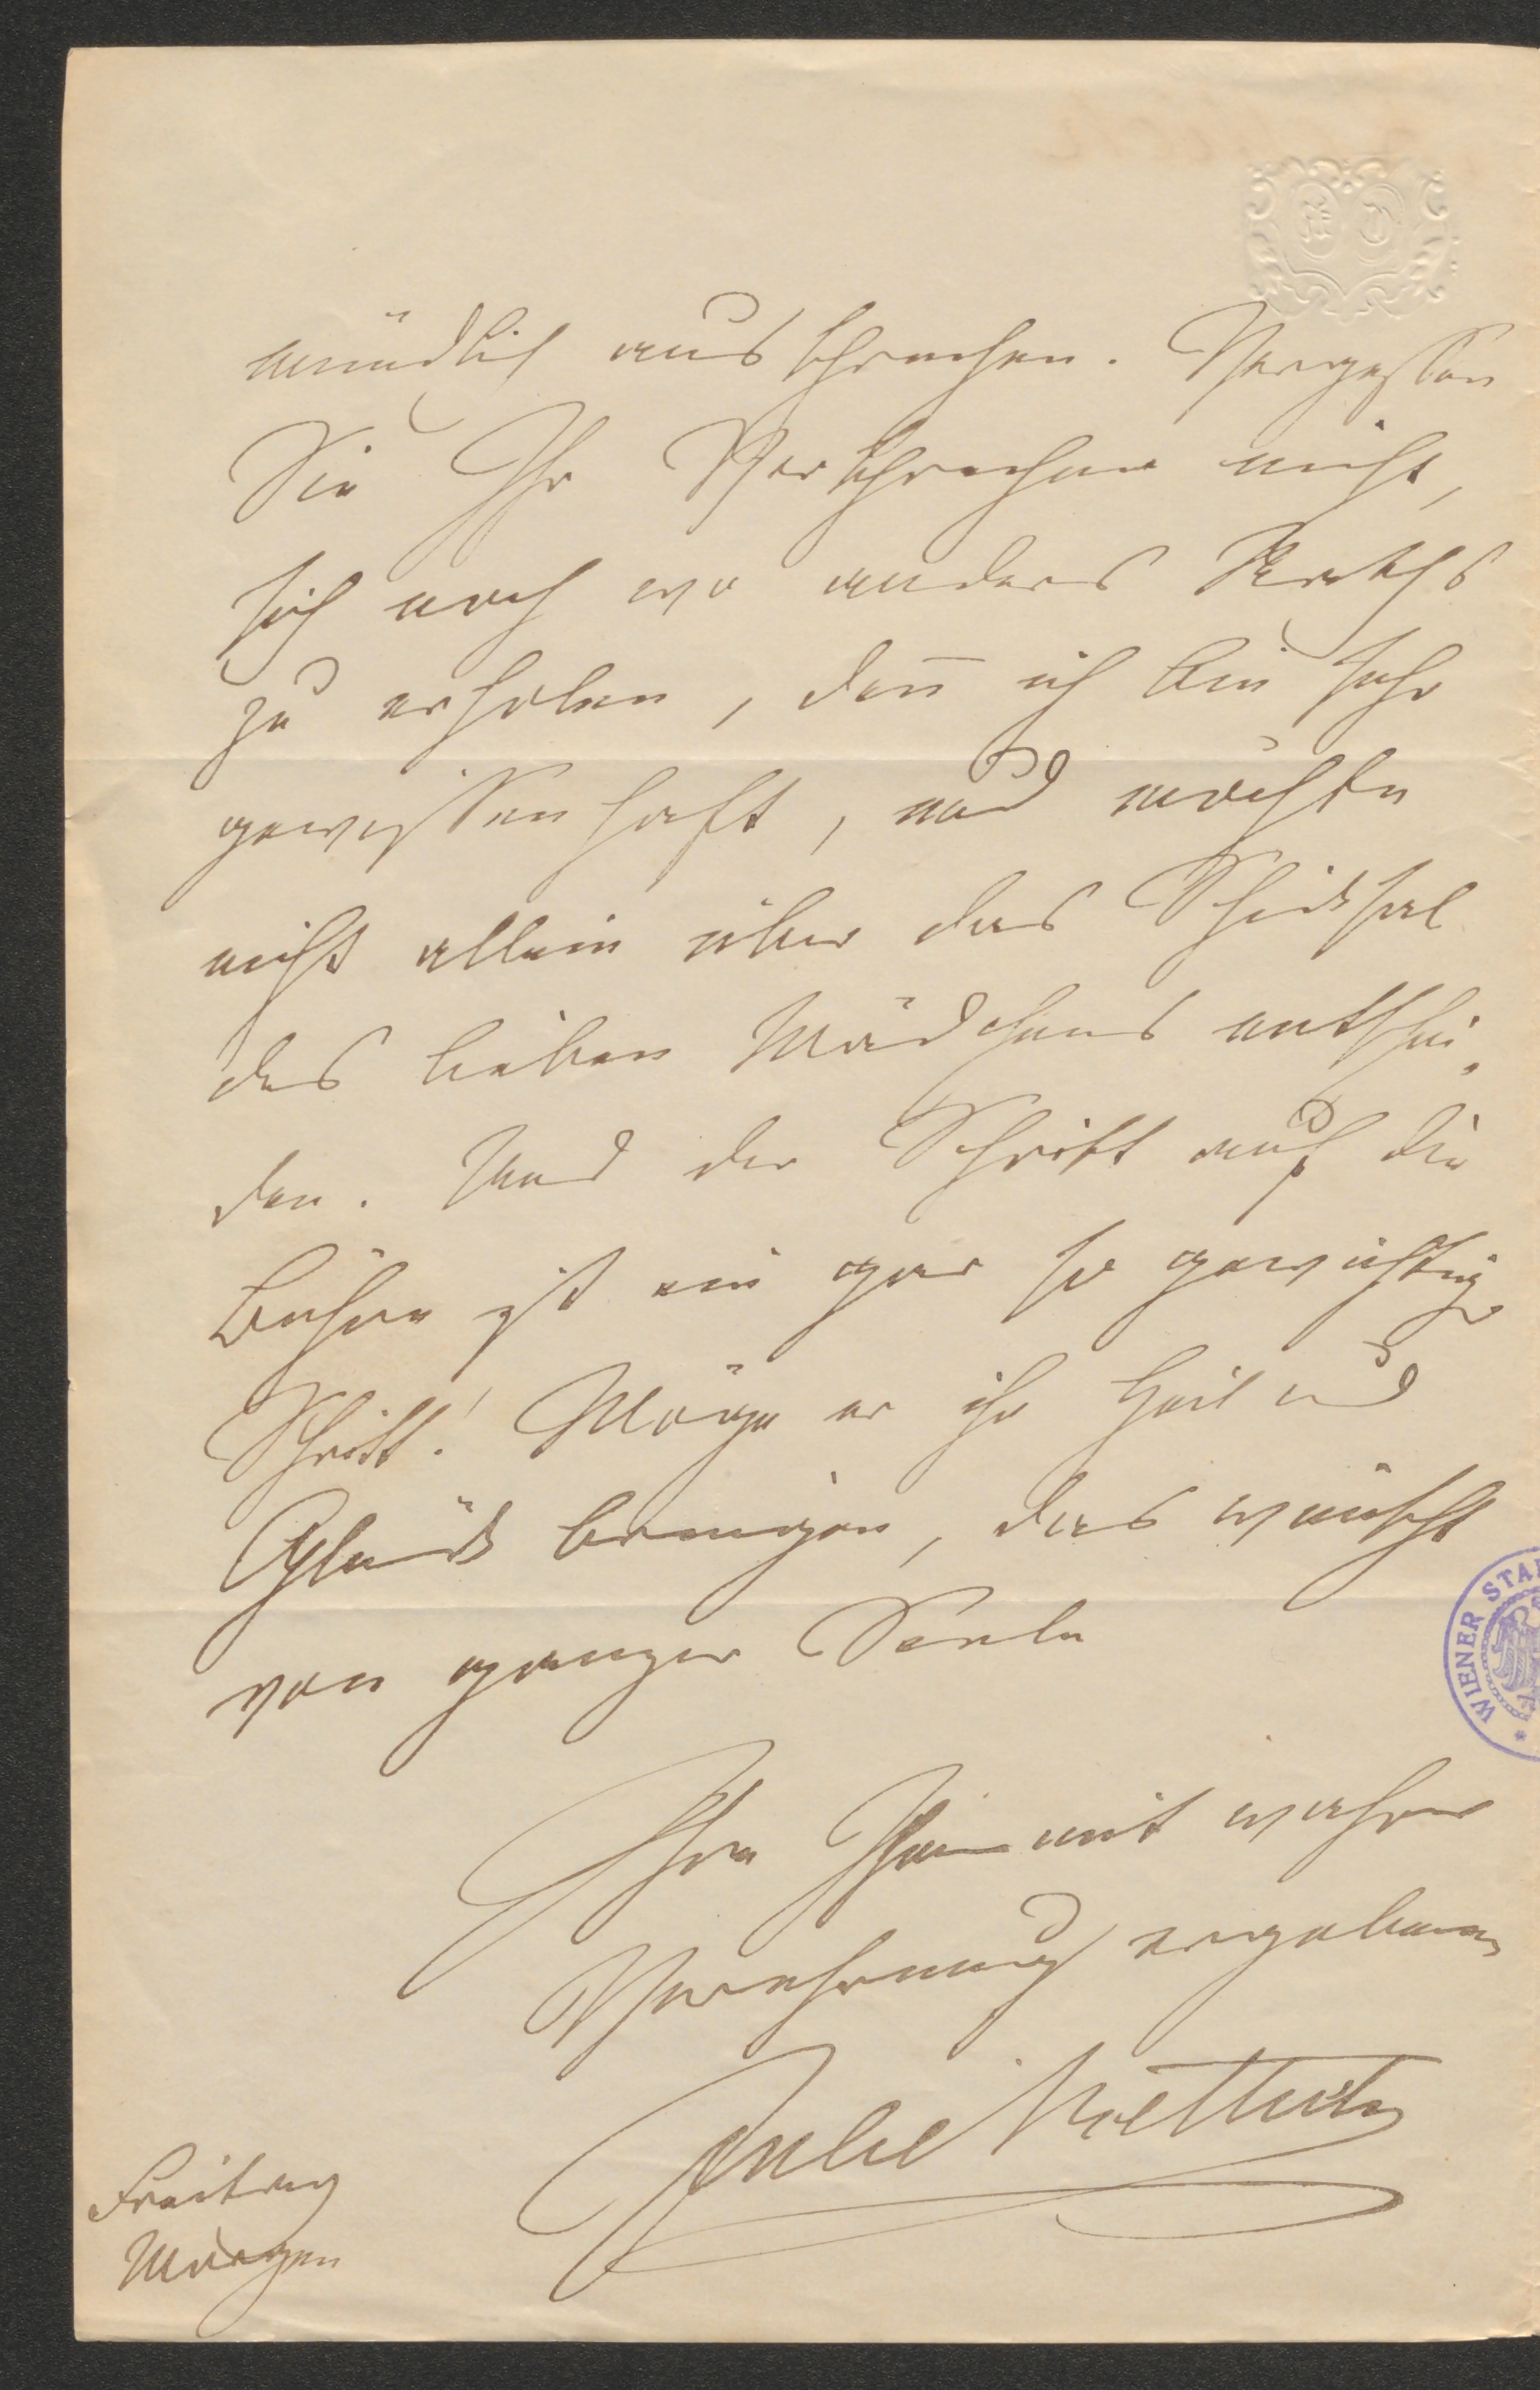 mündlich aussprechen. Vergessen
Sie Ihr Versprechen nicht,
sich noch wo anders Raths
zu erholen, den̄ ich bin sehr
gewissenhaft, und möchte
nicht allein über das Schicksal
des lieben Mädchens entschei„
den. Und der Schritt auf die
Bühne ist ein gar so gewichtiger
Schritt! Möge er ihr Heil und
Glück bringen, das wünscht
von ganzer Seele
Ihre Ihnen mit wahrer
Verehrung ergebene
Julie Rettich
Freitag
Morgen
WIENER STA